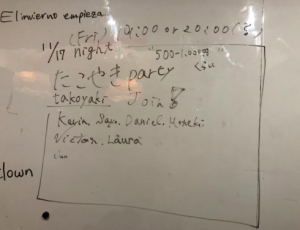 El invierno empieza
(Fri) 19:00 or 20:00
11/17 night
"500-1,000円
くらい
たこやき party
takoyaki Join
Kevin. Daniel.
Victor. Laura
clown